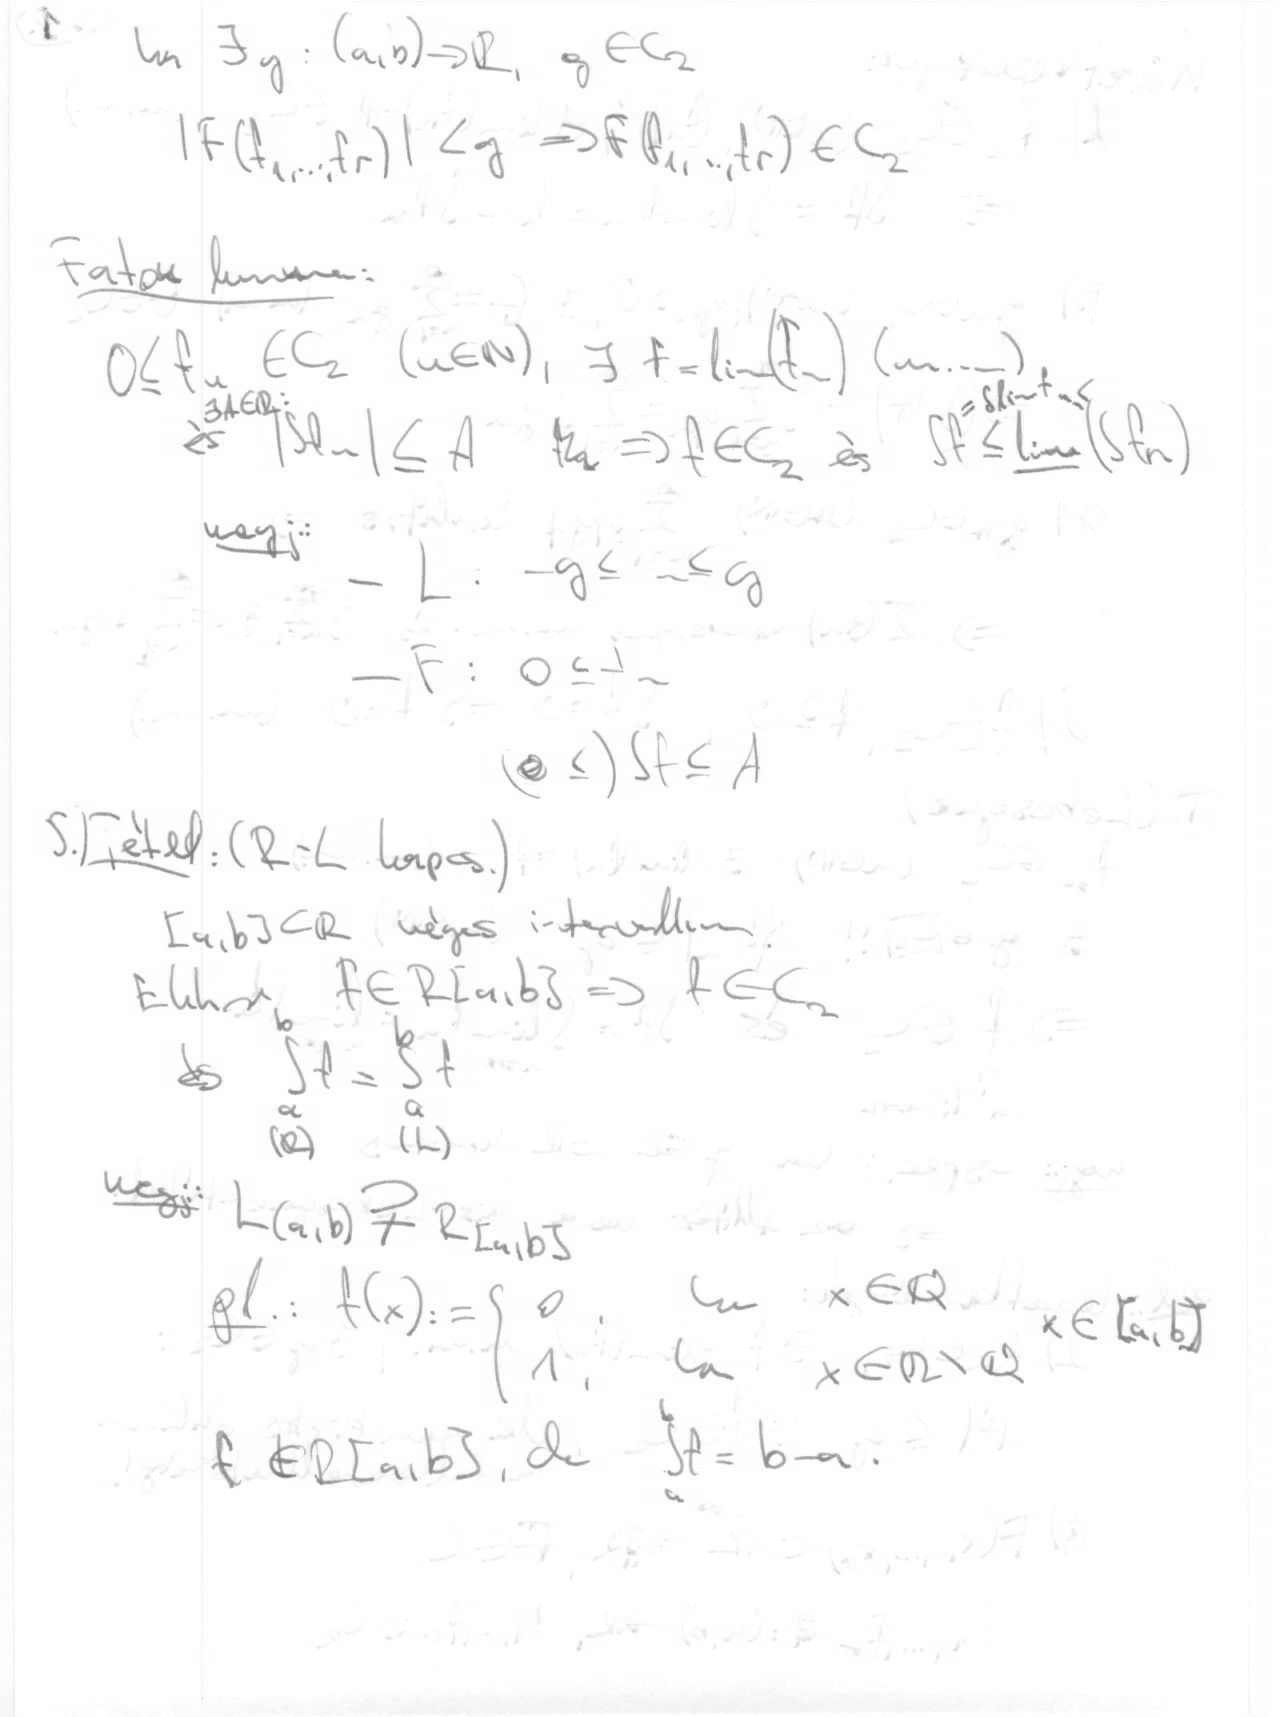 1.
ha ∃ g : (a,b)→R, g ∈ C₂
|F(f₁,...,fᵣ)| < g ⇒ F(f₁,...,fᵣ) ∈ C₂
Fatou lemma:
0 ≤ fₙ ∈ C₂ (n∈N), ∃ f = lim(fₙ) (m.....)
∃A∈R: = ∫lim fₙ ≤
és |∫fₙ| ≤ A ∀n ⇒ f ∈ C₂ és ∫f ≤ lim (∫fₙ)
megj:
– L : –g ≤ ~ ≤ g
– F : 0 ≤ fₙ
( ≤) ∫f ≤ A
5.) Tétel: (R–L kapcs.)
[a,b] ⊂ R véges intervallum.
Ekkor f ∈ R[a,b] ⇒ f ∈ C₂
és ∫ₐᵇ f = ∫ₐᵇ f
(R) (L)
megj: L(a,b) ⊋ R[a,b]
pl.: f(x) := { 0, ha x ∈ Q
1, ha x ∈ R \ Q x ∈ [a,b]
f ∉ R[a,b], de ∫ₐᵇ f = b–a.